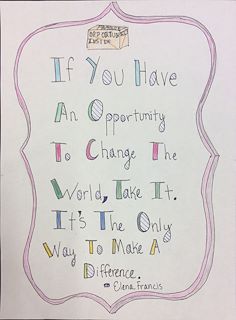 OPPORTUNITY
INSIDE
If You Have
An Opportunity
To Change The
World, Take It.
It's The Only
Way To Make A
Difference.
- Elena Francis